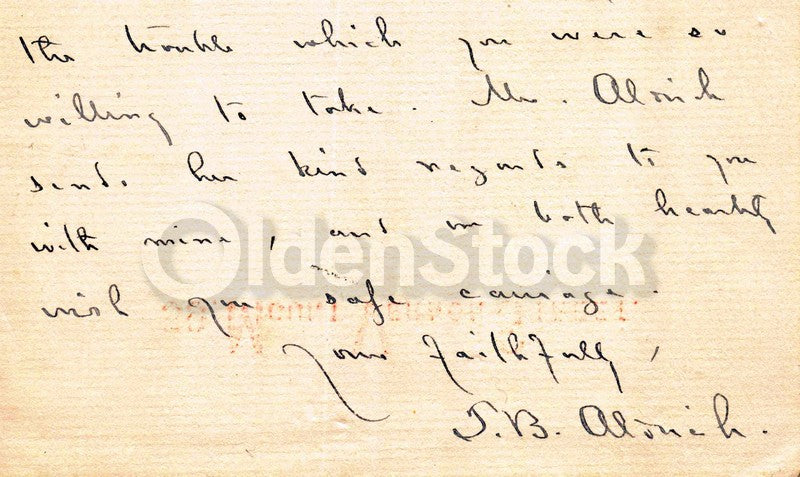 the trouble which you were so
willing to take. Mrs. Aldrich
sends her kind regards to you
with mine, and we both heartily
wish you safe carriage.
Yours faithfully,
T. B. Aldrich.
OldenStock